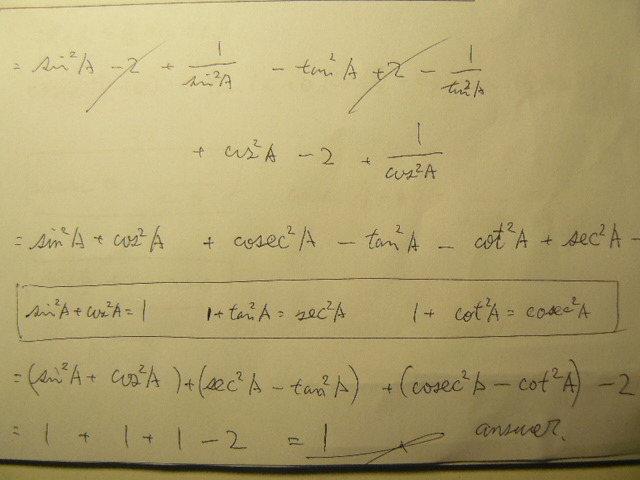 = sin²A - 2 + 1/sin²A - tan²A + 2 - 1/tan²A
+ cos²A - 2 + 1/cos²A
= sin²A + cos²A + cosec²A - tan²A - cot²A + sec²A -
sin²A + cos²A = 1 1 + tan²A = sec²A 1 + cot²A = cosec²A
= (sin²A + cos²A) + (sec²A - tan²A) + (cosec²A - cot²A) - 2
= 1 + 1 + 1 - 2 = 1 answer.